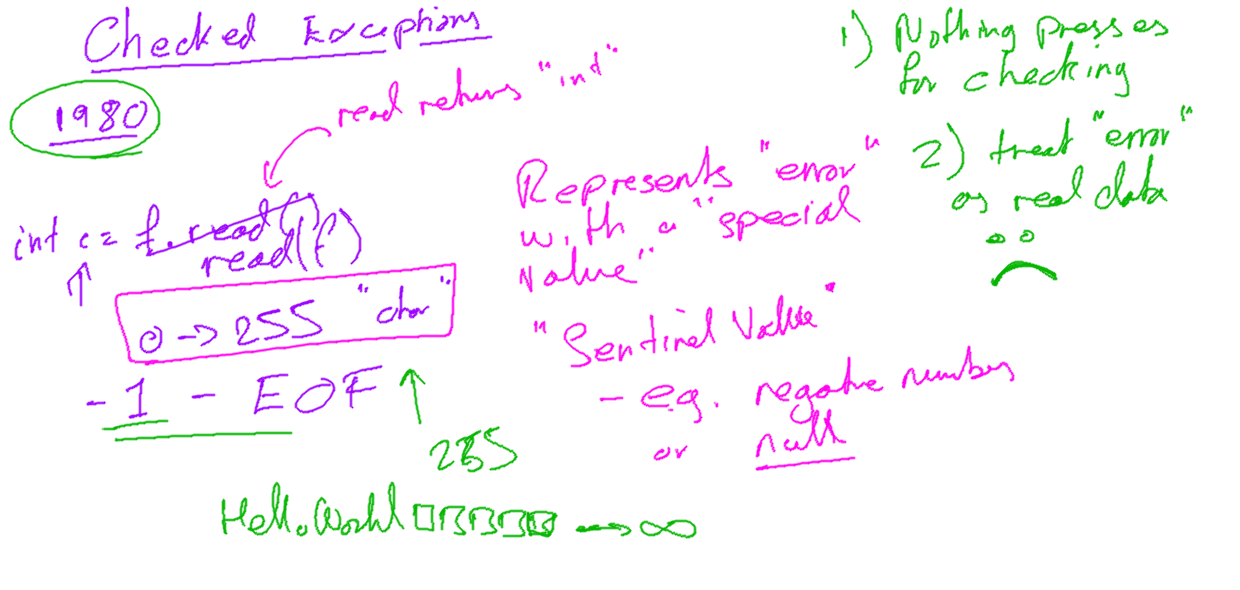 Checked Exceptions
1980
read returns "int"
int c = f.read()
read(f)
0 -> 255 "char"
-1 - EOF
255
Hello World □□□□□ → ∞
Represents "error"
with a "special
value"
"Sentinel Value"
- e.g. negative numbers
or null
1) Nothing presses
for checking
2) treat "error"
as real data